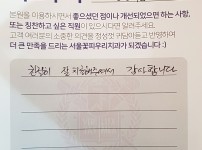 본원을 이용하시면서 좋으셨던 점이나 개선되었으면 하는 사항,
또는 칭찬하고 싶은 직원이 있으시다면 알려주세요.
고객 여러분의 소중한 의견을 정성껏 귀담아듣고 반영하여
더 큰 만족을 드리는 서울꽃피우리치과가 되겠습니다 :)
친절히 잘 치료해주셔서 감사합니다